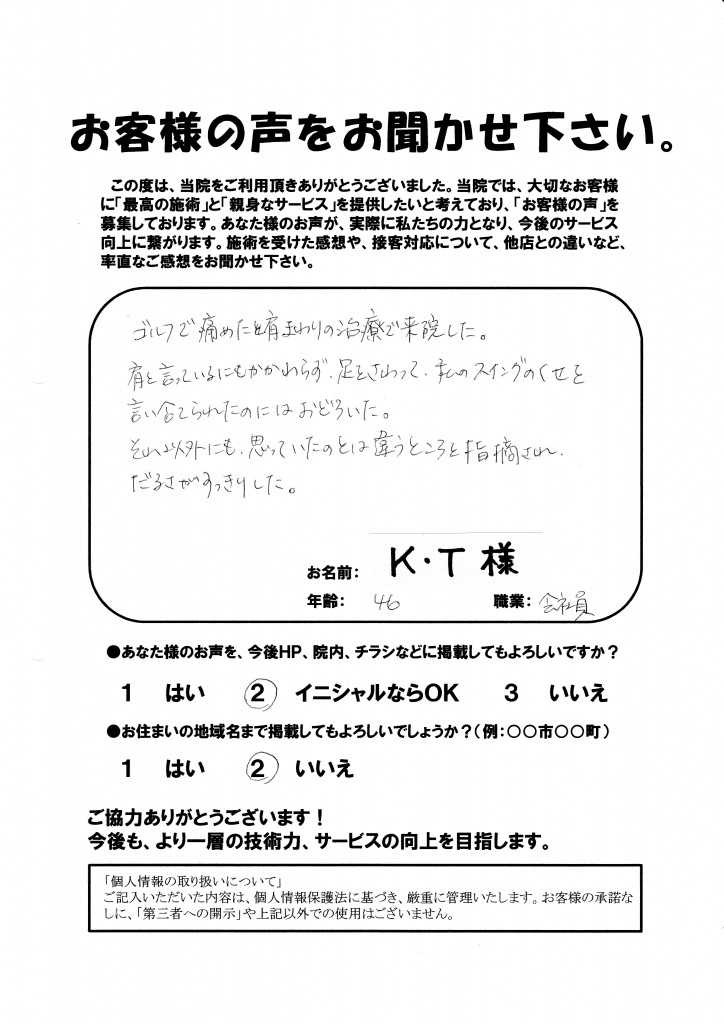 お客様の声をお聞かせ下さい。
この度は、当院をご利用頂きありがとうございました。当院では、大切なお客様
に「最高の施術」と「親身なサービス」を提供したいと考えており、「お客様の声」を
募集しております。あなた様のお声が、実際に私たちの力となり、今後のサービス
向上に繋がります。施術を受けた感想や、接客対応について、他店との違いなど、
率直なご感想をお聞かせ下さい。
ゴルフで痛めた右肩まわりの治療で来院した。
肩と言っているにもかかわらず、足をさわって、私のスイングのくせを
言い当てられたのにはおどろいた。
それ以外にも、思っていたのとは違うところを指摘され、
だるさがすっきりした。
お名前： K・T 様
年齢： 46 職業： 会社員
●あなた様のお声を、今後HP、院内、チラシなどに掲載してもよろしいですか？
1 はい 2 イニシャルならOK 3 いいえ
●お住まいの地域名まで掲載してもよろしいでしょうか？（例：○○市○○町）
1 はい 2 いいえ
ご協力ありがとうございます！
今後も、より一層の技術力、サービスの向上を目指します。
「個人情報の取り扱いについて」
ご記入いただいた内容は、個人情報保護法に基づき、厳重に管理いたします。お客様の承諾な
しに、「第三者への開示」や上記以外での使用はございません。